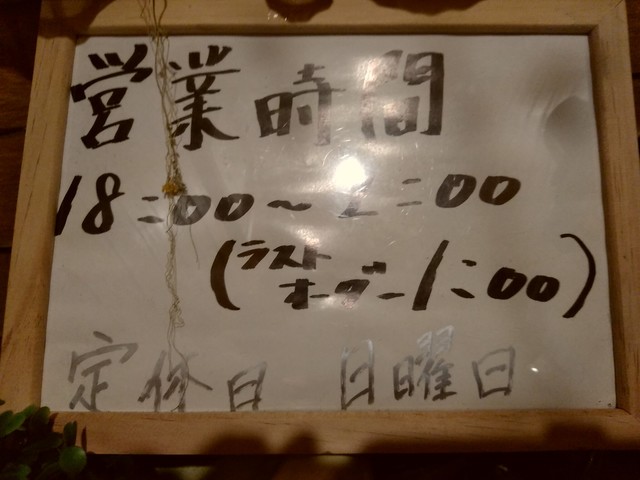 営業時間
18:00~2:00
(ラスト
オーダー 1:00)
定休日 日曜日